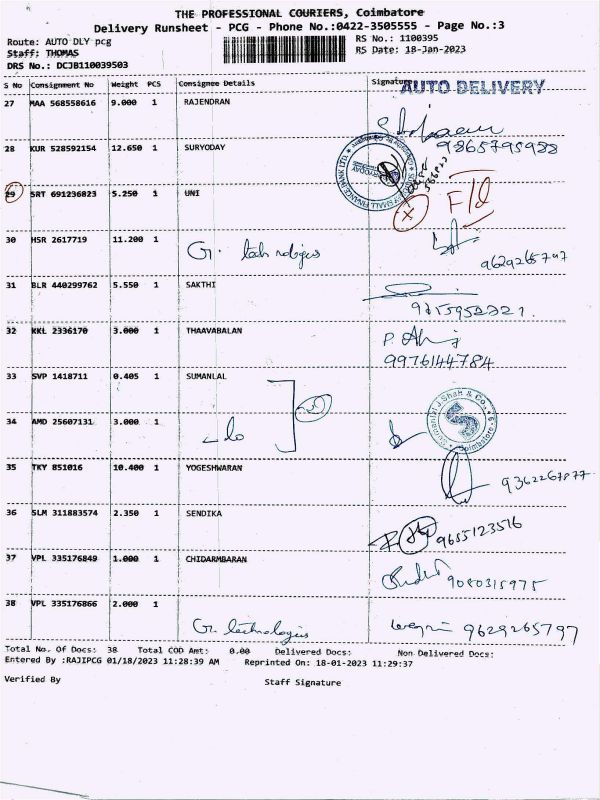 THE PROFESSIONAL COURIERS, Coimbatore
Delivery Runsheet - PCG - Phone No.:0422-3505555 - Page No.:3
Route: AUTO DLY pcg
RS No.: 1100395
Staff: THOMAS
RS Date: 18-Jan-2023
DRS No.: DCJB110039503
S No Consignment No Weight PCS Consignee Details Signature
AUTO DELIVERY
27 MAA 568558616 9.000 1 RAJENDRAN
28 KUR 528592154 12.650 1 SURYODAY 9865795988
29 SRT 691236823 5.250 1 UNI
F/d
30 HSR 2617719 11.200 1 G. technologies
9629265797
31 BLR 440299762 5.550 1 SAKTHI
32 KKL 2336170 3.000 1 THAAVABALAN
9976144784
33 SVP 1418711 0.405 1 SUMANLAL
34 AMD 25607131 3.000 1 do
35 TKY 851016 10.400 1 YOGESHWARAN
9362267877
36 SLM 311883574 2.350 1 SENDIKA
9655123516
37 VPL 335176849 1.000 1 CHIDARMBARAN
9080315975
38 VPL 335176866 2.000 1 G. technologies
9629265797
Total No. Of Docs: 38 Total COD Amt: 0.00 Delivered Docs: Non Delivered Docs:
Entered By :RAJIPCG 01/18/2023 11:28:39 AM Reprinted On: 18-01-2023 11:29:37
Verified By Staff Signature